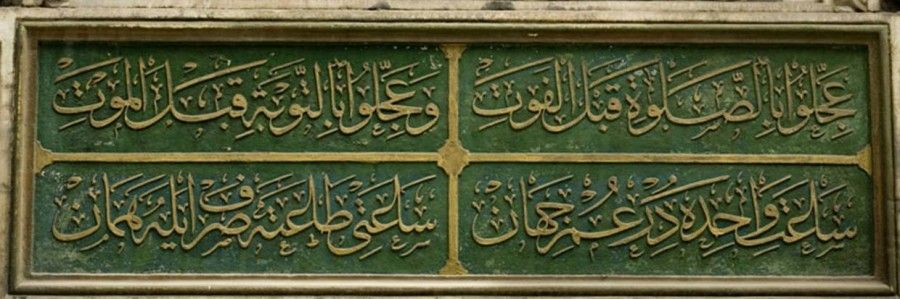 عَجِّلُوا بِالصَّلٰوةِ قَبْلَ الْفَوْتِ
وَعَجِّلُوا بِالتَّوْبَةِ قَبْلَ الْمَوْتِ
سَاعَتِ وَاحِدَه دِرْ عُمْرِ جِهَانْ
سَاعَتِى طَاعَتِه صَرْف اَيْلَه هَمَانْ